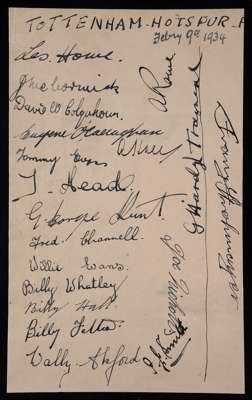 TOTTENHAM. HOTSPUR. F
Febry 9th 1934
Les. Howe.
J McCormick
David W Colquhoun.
Eugene O'Callaghan
Tommy Evans
T. Meads.
G. George Hunt.
Fred. Channell.
Willie Evans.
Billy Whatley
Billy Hall
Billy Felton.
Wally. Alsford
A Rowe
Joe Nicholls